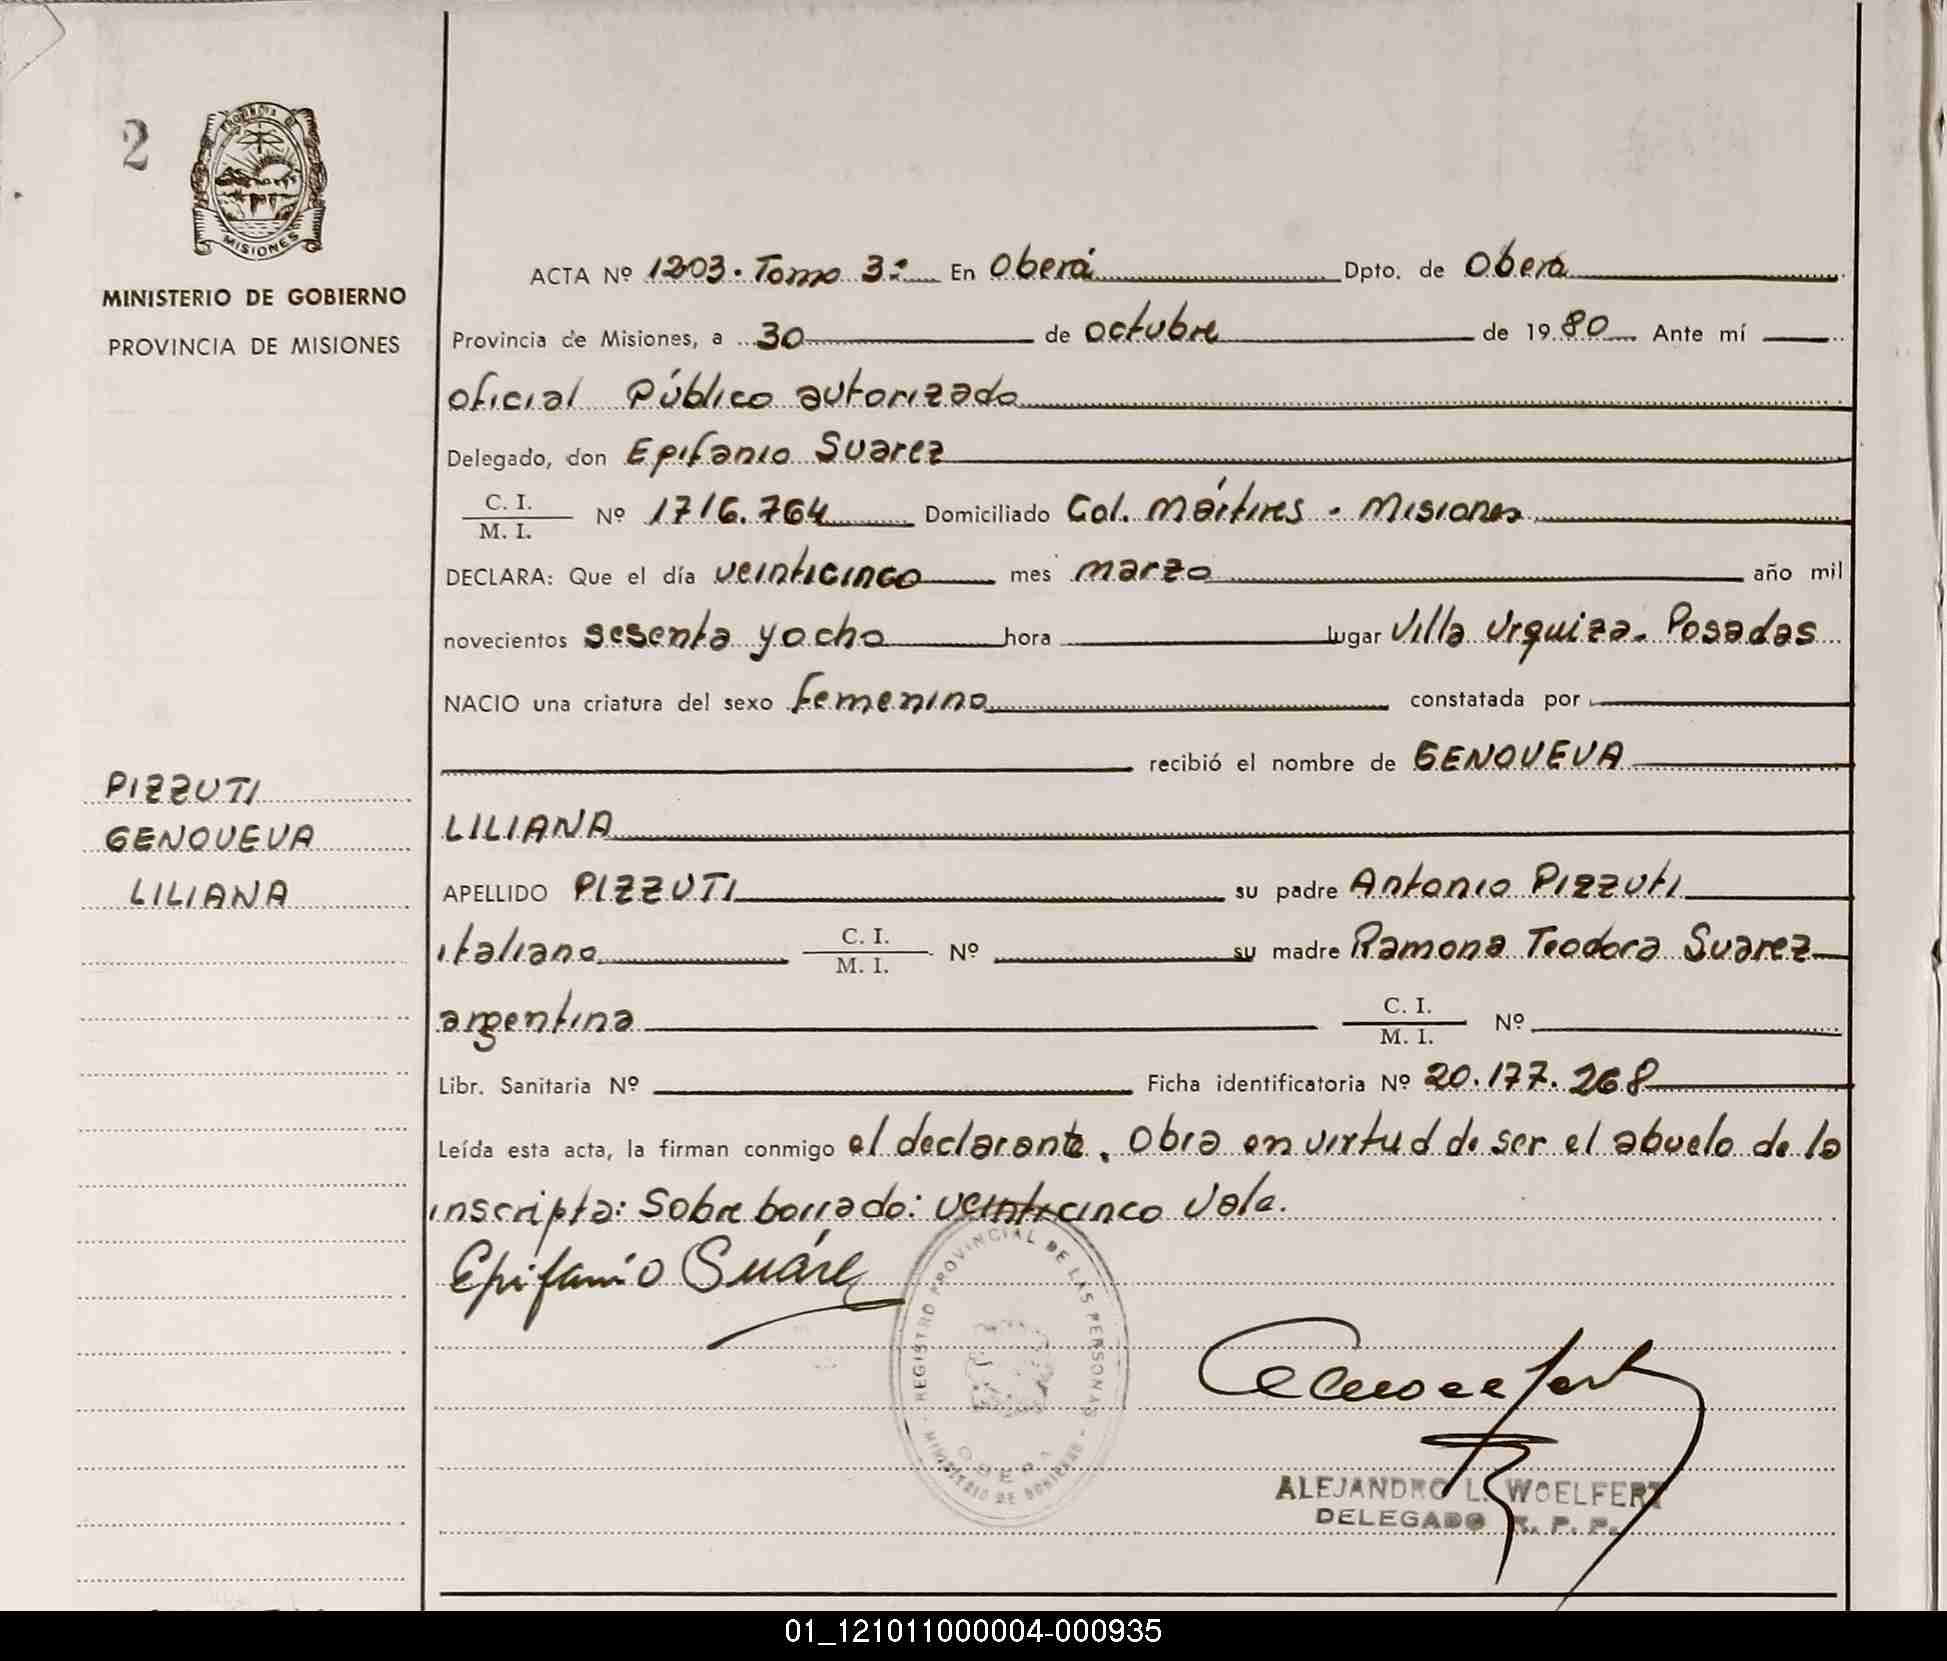 2
PROVINCIA DE
MISIONES
MINISTERIO DE GOBIERNO
PROVINCIA DE MISIONES
ACTA Nº 1203. Tomo 3º En Oberá Dpto. de Oberá
Provincia de Misiones, a 30 de octubre de 1980 Ante mí
oficial Público autorizado
Delegado, don Epifanio Suarez
C. I.
M. I. Nº 1716.764 Domiciliado Col. Mártires - Misiones
DECLARA: Que el día veinticinco mes marzo año mil
novecientos sesenta y ocho hora lugar Villa Urquiza. Posadas
NACIO una criatura del sexo femenino constatada por
recibió el nombre de GENOVEVA
LILIANA
PIZZUTI
GENOVEVA
LILIANA
APELLIDO PIZZUTI su padre Antonio Pizzuti
italiano C. I. M. I. Nº su madre Ramona Teodora Suarez
argentina C. I. M. I. Nº
Libr. Sanitaria Nº Ficha identificatoria Nº 20.177.268
Leída esta acta, la firman conmigo el declarante. Obra en virtud de ser el abuelo de la
inscripta: Sobre borrado: veinticinco Vale.
Epifanio Suárez
REGISTRO PROVINCIAL DE LAS PERSONAS
OBERA
MINISTERIO DE GOBIERNO
ALEJANDRO L. WOELFERT
DELEGADO R. P. P.
01_121011000004-000935